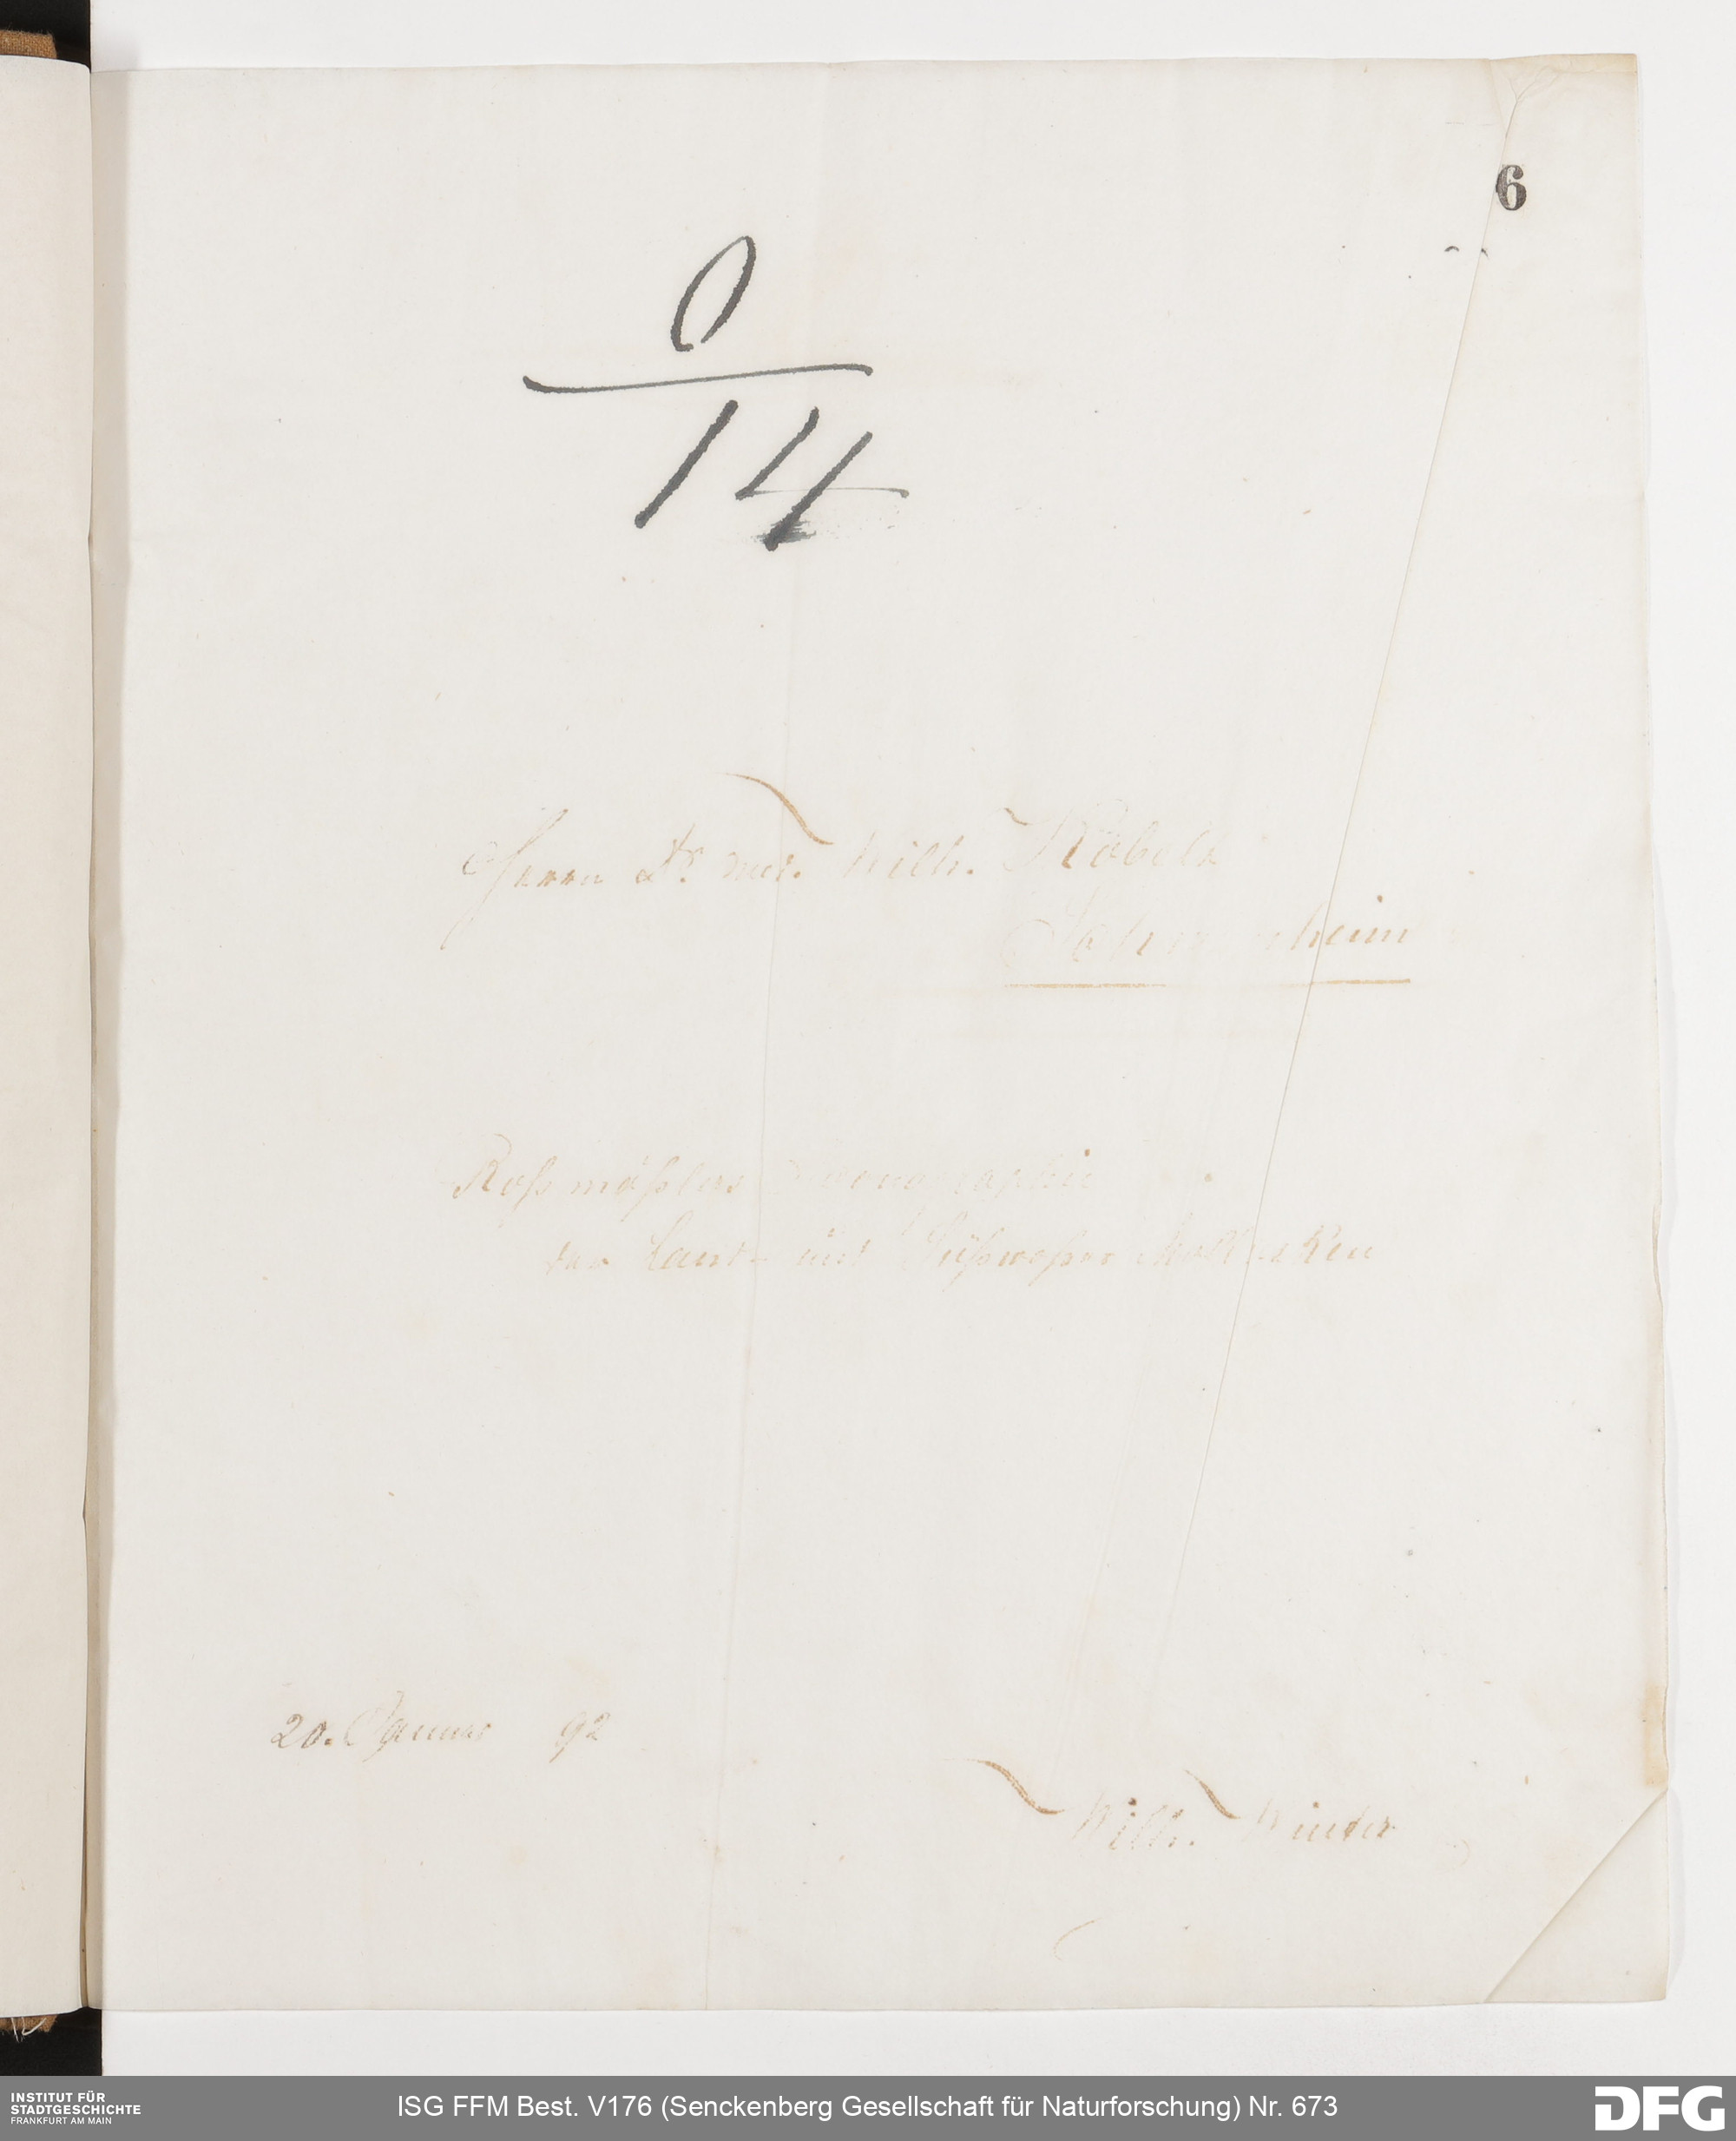 6
0
14
Herrn Dr. med. Wilh. Kobelt
Roßmäßlers Iconographie
der Land- und Süßwasser Mollusken
20. Januar 92
Wilh. Winter
INSTITUT FÜR
STADTGESCHICHTE
FRANKFURT AM MAIN
ISG FFM Best. V176 (Senckenberg Gesellschaft für Naturforschung) Nr. 673
DFG